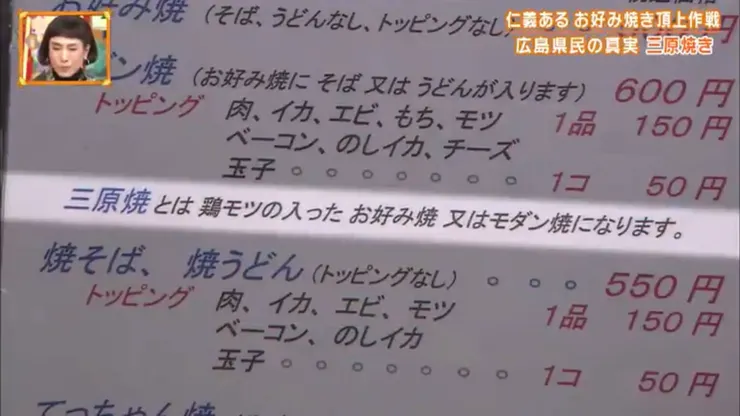 仁義ある お好み焼き頂上作戦
広島県民の真実 三原焼き
(そば、うどんなし、トッピングなし)
ダン焼 (お好み焼に そば 又は うどんが入ります) 600円
トッピング 肉、イカ、エビ、もち、モツ 1品 150円
ベーコン、のしイカ、チーズ
玉子 。。。。。。。 1コ 50円
三原焼とは 鶏モツの入った お好み焼 又はモダン焼になります。
焼そば、焼うどん (トッピングなし) 。。。 550円
トッピング 肉、イカ、エビ、モツ 1品 150円
ベーコン、のしイカ
玉子 。。。。。。。 1コ 50円
てっちゃん焼